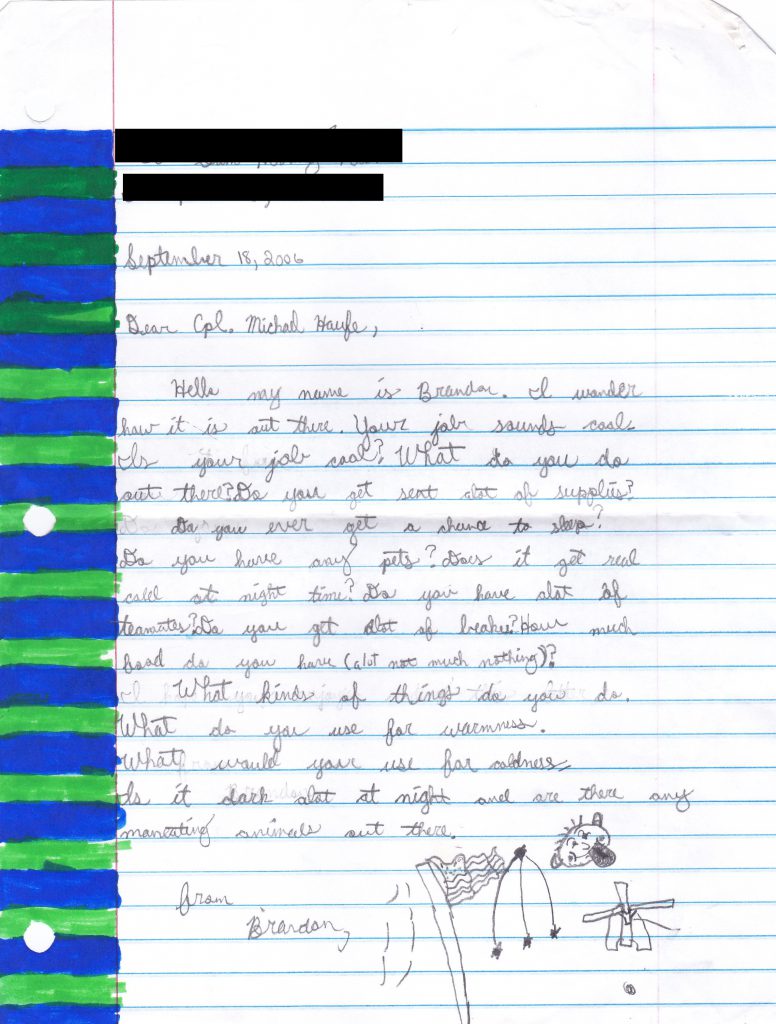 September 18, 2006
Dear Cpl. Michael Haufe,
Hello my name is Brandon. I wander
how it is out there. Your job sounds cool.
Is your job cool? What do you do
out there? Do you get sent alot of supplies?
Do you ever get a chance to sleep?
Do you have any pets? Does it get real
cold at night time? Do you have alot of
teamates? Do you get alot of breakes? How much
food do you have (alot not much nothing)?
What kinds of things do you do.
What do you use for warmness.
What would your use for coldness
Is it dark alot at night and are there any
maneating animals out there.
from
Brandon,